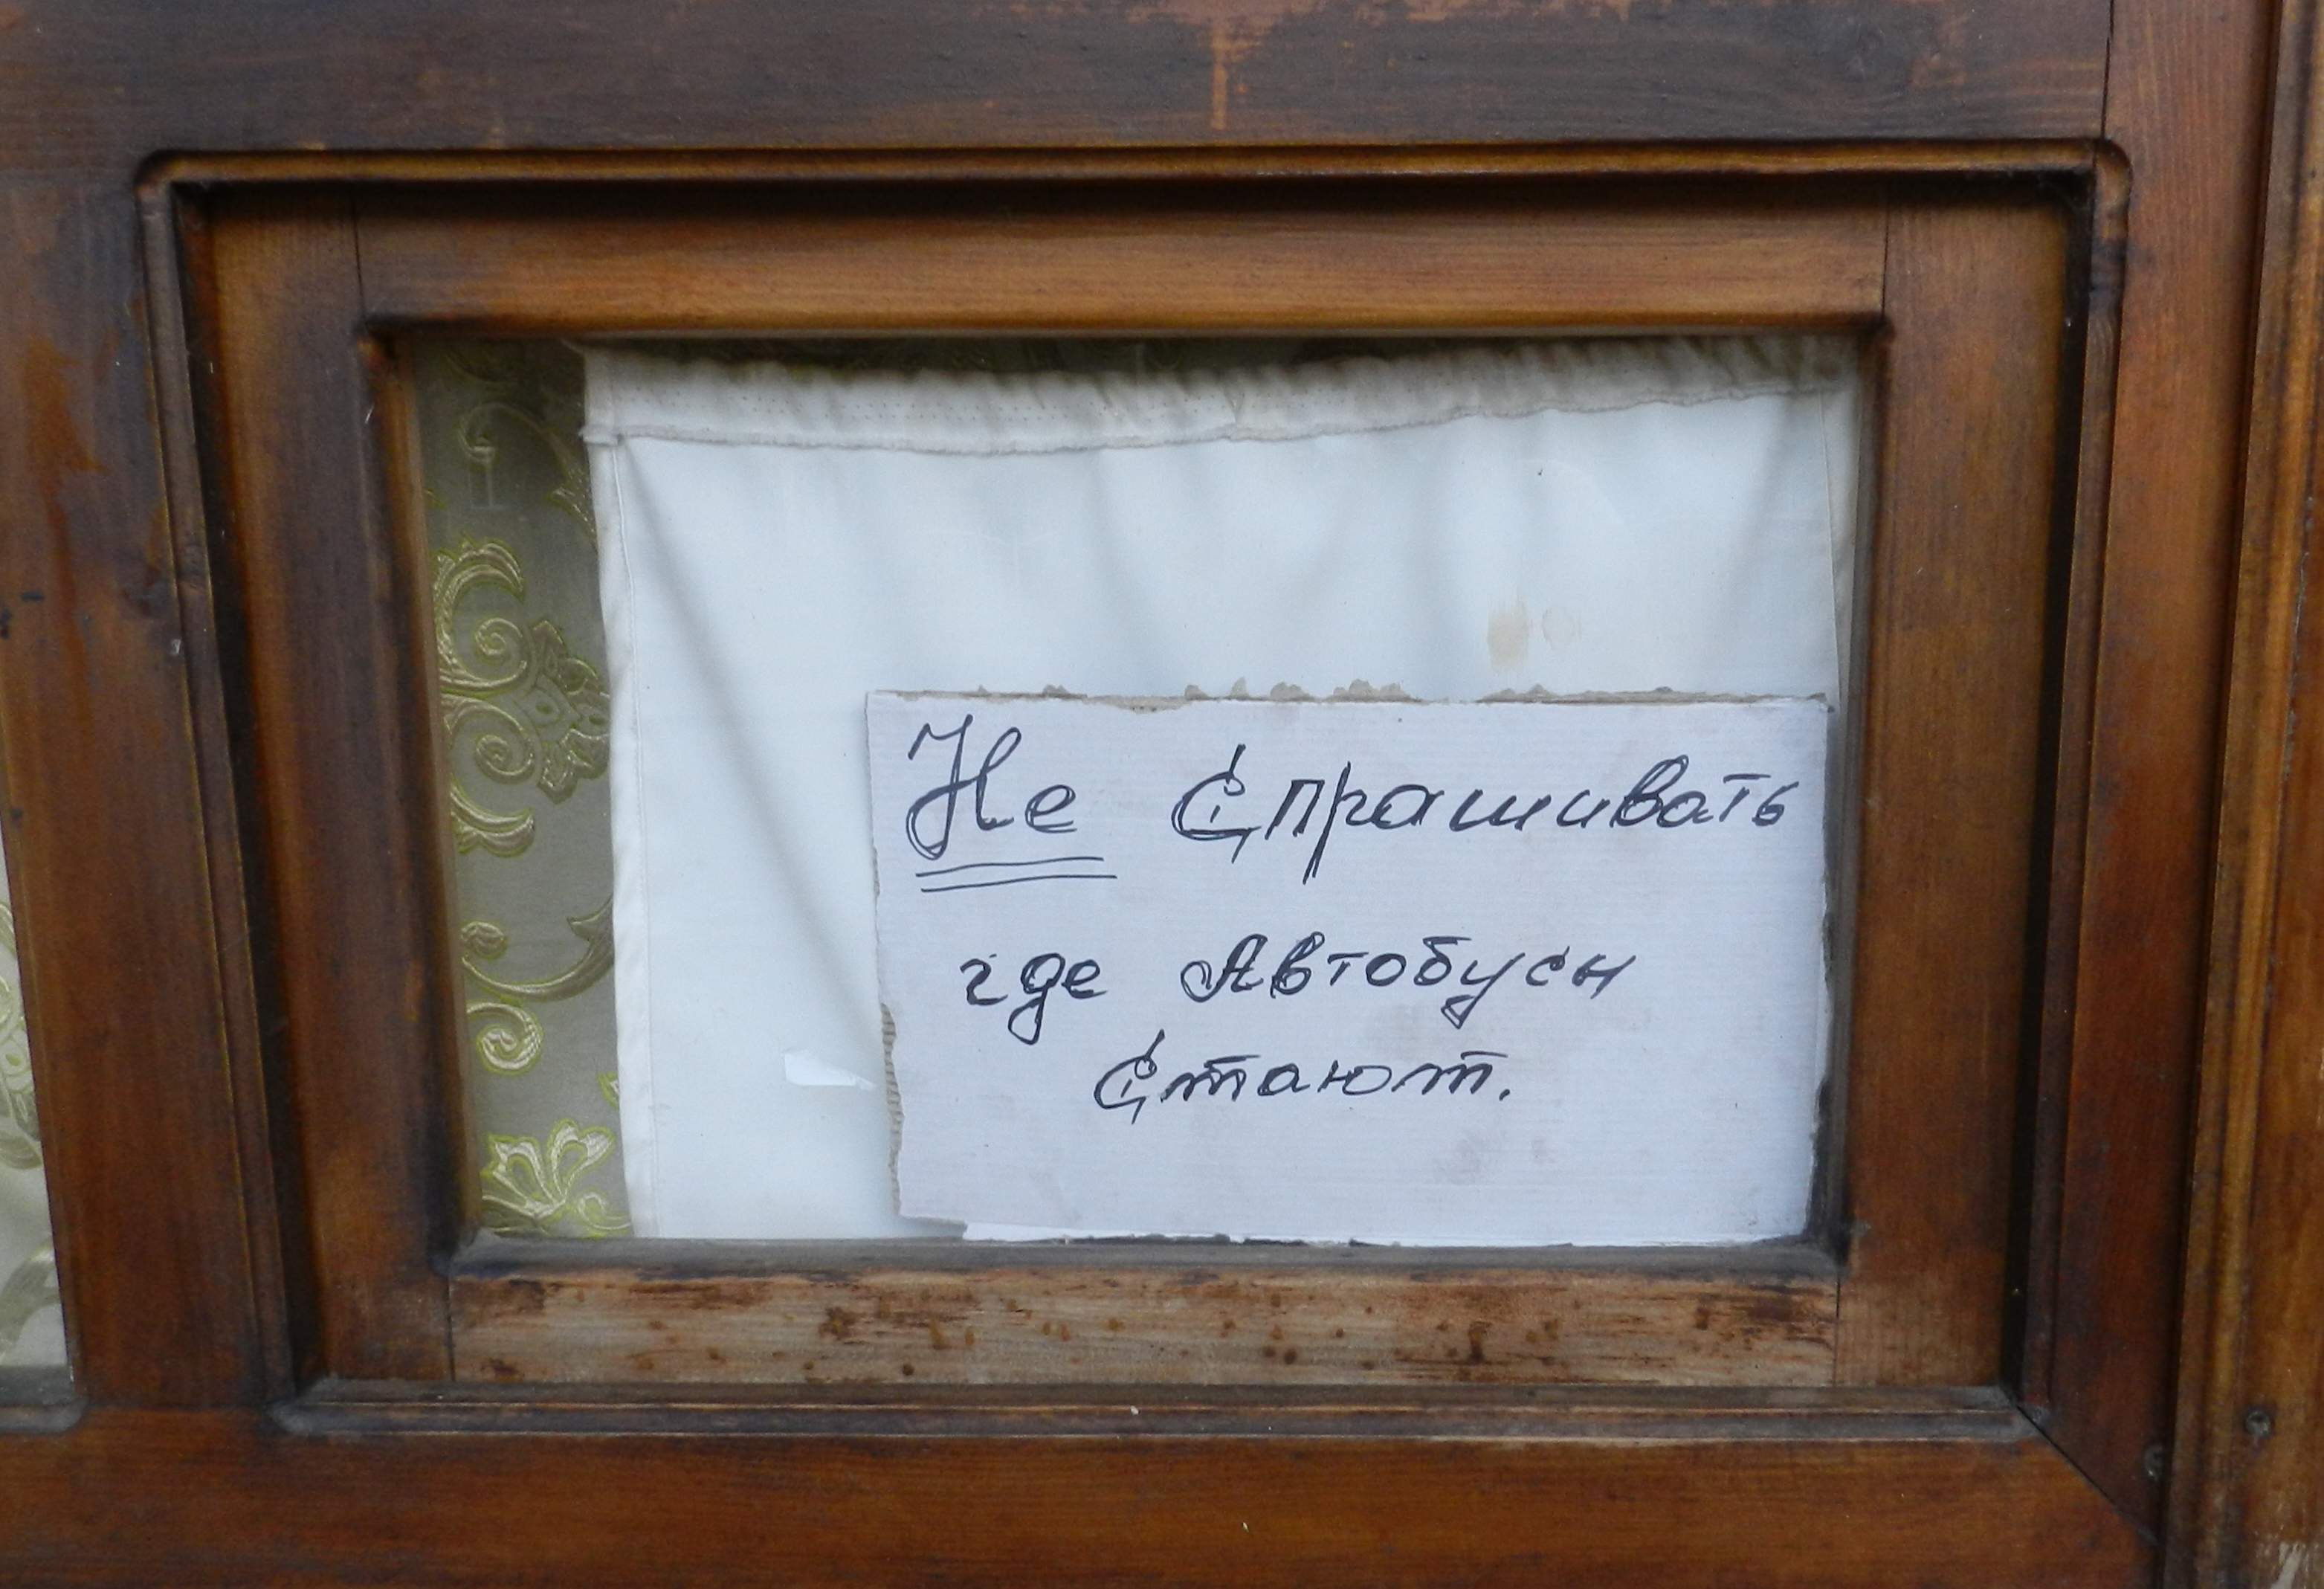 Не Спрашивать
где Автобусы
Стают.